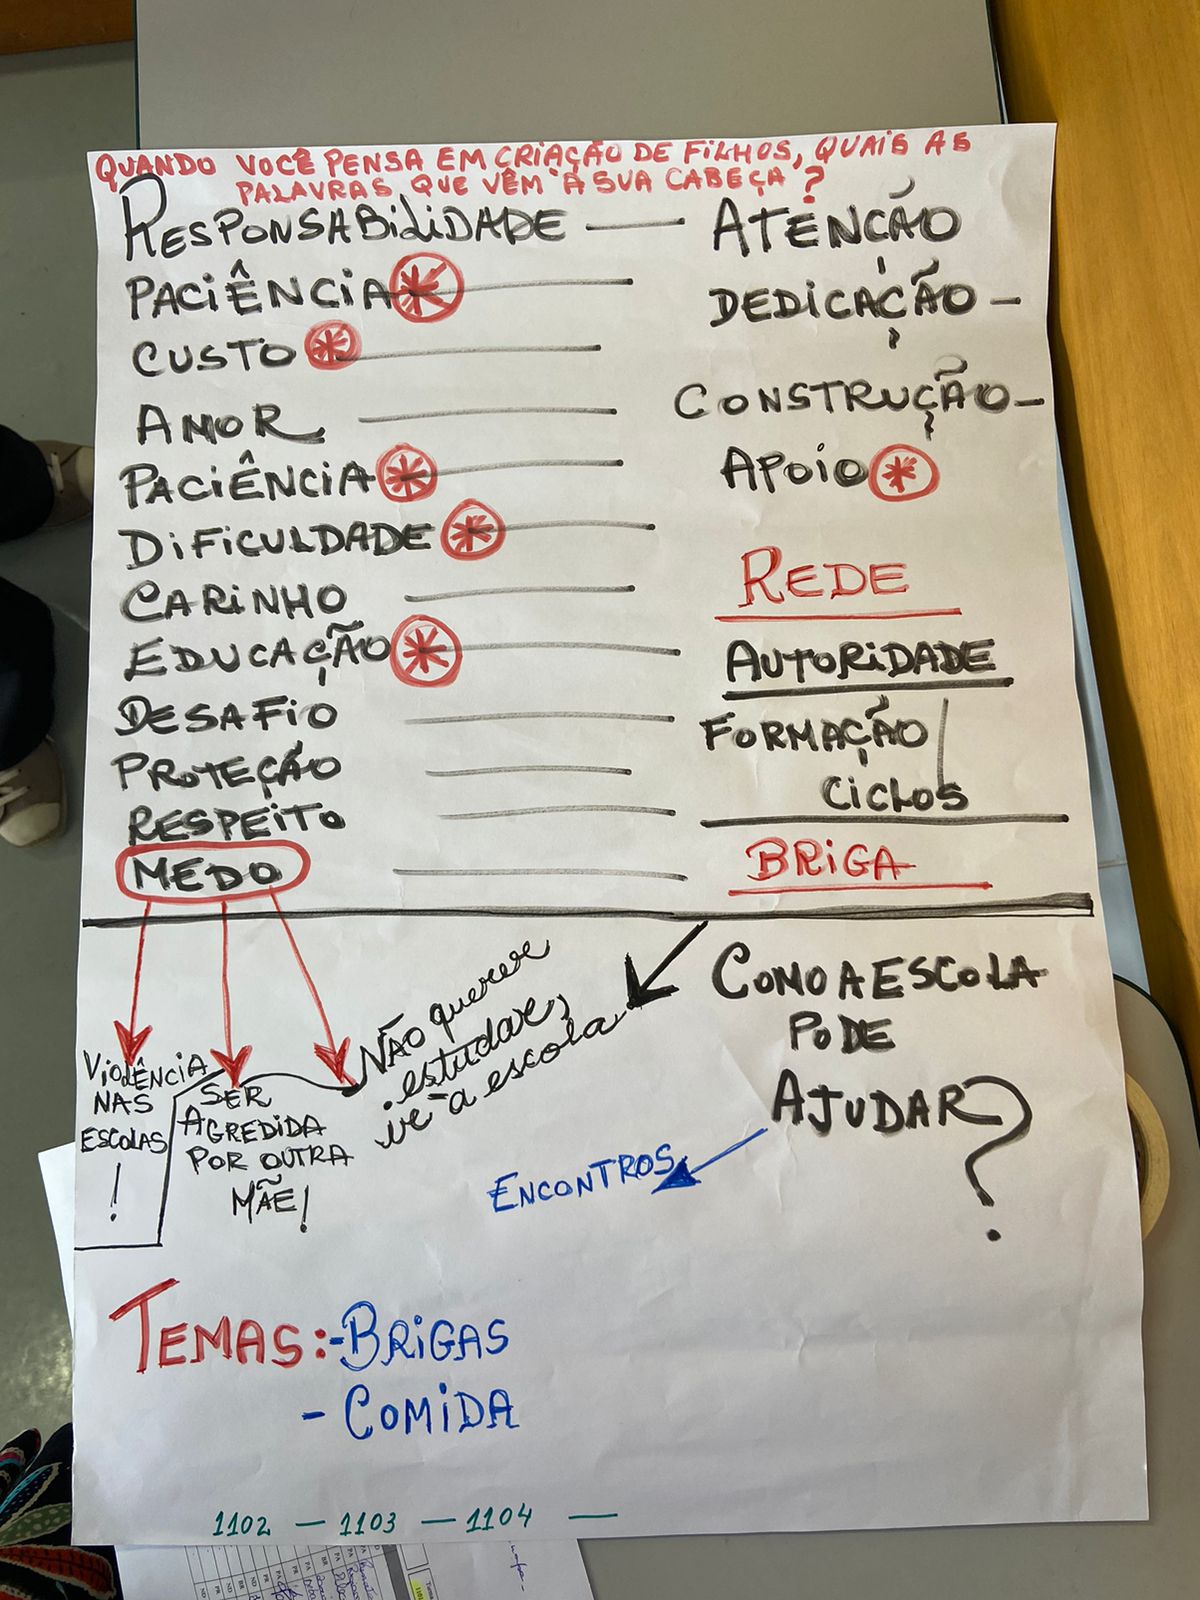 QUANDO VOCÊ PENSA EM CRIAÇÃO DE FILHOS, QUAIS AS
PALAVRAS QUE VÊM À SUA CABEÇA?
RESPONSABILIDADE — ATENÇÃO
PACIÊNCIA
DEDICAÇÃO –
CUSTO
AMOR
CONSTRUÇÃO –
PACIÊNCIA
APOIO
DIFICULDADE
CARINHO
REDE
EDUCAÇÃO
AUTORIDADE
DESAFIO
FORMAÇÃO
PROTEÇÃO
CICLOS
RESPEITO
MEDO
BRIGA
VIOLÊNCIA
NAS
ESCOLAS
!
SER
AGREDIDA
POR OUTRA
MÃE!
NÃO querer
estudar,
ir a escola
COMO A ESCOLA
PODE
AJUDAR?
ENCONTROS
TEMAS: - BRIGAS
- COMIDA
1102 — 1103 — 1104 —